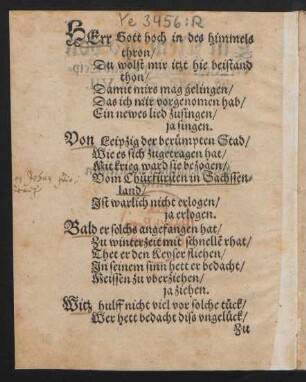 Ye 3456:R
HErr Gott hoch in des himmels
thron/
Du wolst mir itzt hie beistand
thon/
Damit mirs mag gelingen/
Das ich mir vorgenomen hab/
Ein newes lied zusingen/
ja singen.
Von Leipzig der berümpten Stad/
Wie es sich zugetragen hat/
Mit krieg ward sie bezogen/
Vom Churfürsten in Sachssen-
land/
Ist warlich nicht erlogen/
ja erlogen.
Bald er solchs angefangen hat/
Zu winterzeit mit schnellē rhat/
Thet er den Keyser fliehen/
In seinem sinn hett er bedacht/
Meissen zu vberziehen/
ja ziehen.
Witz hulff nicht viel vor solche tück/
Wer hett bedacht diss vngelück/
Zu